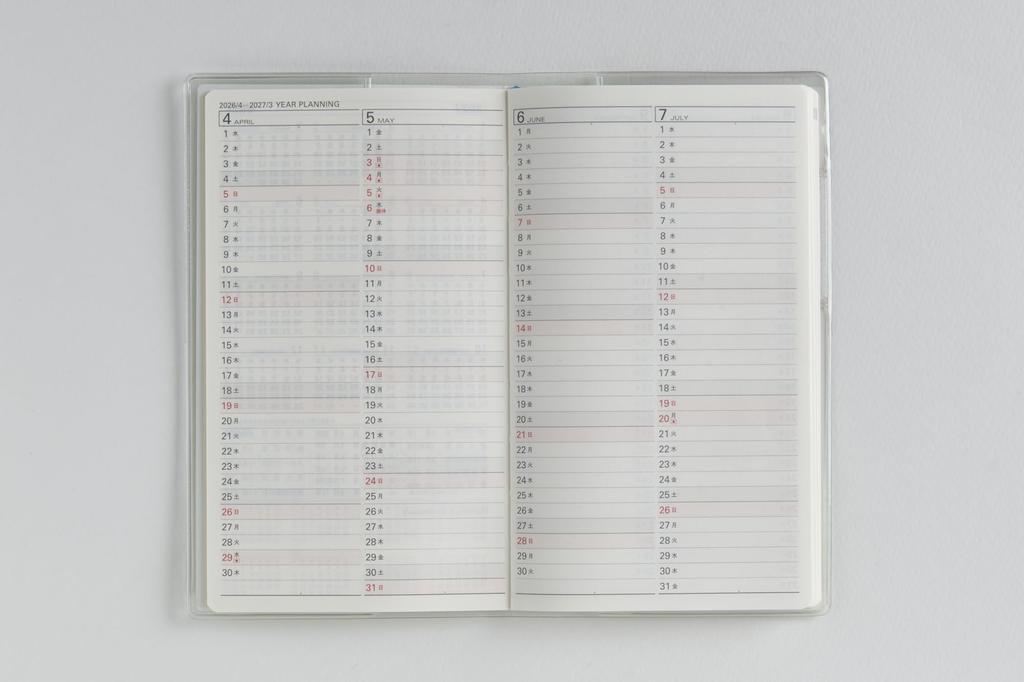 2026/4—2027/3 YEAR PLANNING
4 APRIL
1 水
2 木
3 金
4 土
5 日
6 月
7 火
8 水
9 木
10 金
11 土
12 日
13 月
14 火
15 水
16 木
17 金
18 土
19 日
20 月
21 火
22 水
23 木
24 金
25 土
26 日
27 月
28 火
29 水
30 木
5 MAY
1 金
2 土
3 日
4 月
5 火
6 水
7 木
8 金
9 土
10 日
11 月
12 火
13 水
14 木
15 金
16 土
17 日
18 月
19 火
20 水
21 木
22 金
23 土
24 日
25 月
26 火
27 水
28 木
29 金
30 土
31 日
6 JUNE
1 月
2 火
3 水
4 木
5 金
6 土
7 日
8 月
9 火
10 水
11 木
12 金
13 土
14 日
15 月
16 火
17 水
18 木
19 金
20 土
21 日
22 月
23 火
24 水
25 木
26 金
27 土
28 日
29 月
30 火
7 JULY
1 水
2 木
3 金
4 土
5 日
6 月
7 火
8 水
9 木
10 金
11 土
12 日
13 月
14 火
15 水
16 木
17 金
18 土
19 日
20 月
21 火
22 水
23 木
24 金
25 土
26 日
27 月
28 火
29 水
30 木
31 金